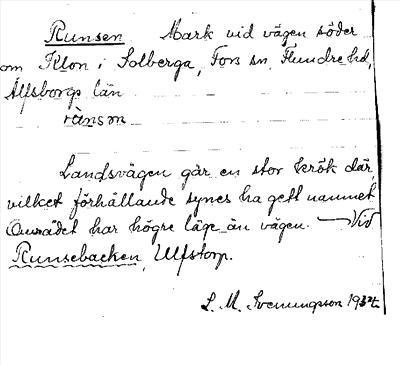 Runsen Mark vid vägen söder
om Klon i Solberga, Fors sn, Flundre hd,
Älfsborgs län
rànsən
Landsvägen går en stor krök där,
vilket förhållande synes ha gett namnet
Området har högre läge än vägen. — Vid
Runsebacken, Ulfstorp.
L. M. Svenungsson 1932